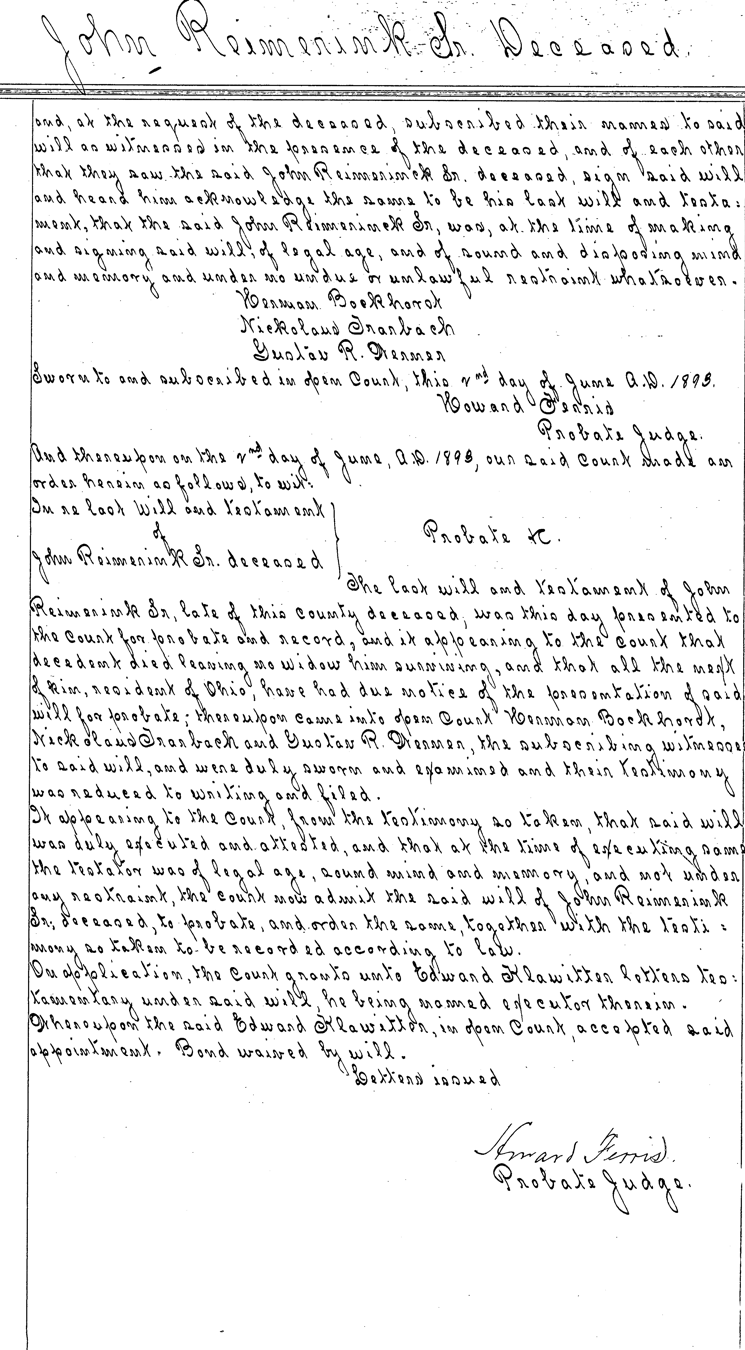 John Reimerink Sr. Deceased.
and, at the request of the deceased, subscribed their names to said
will as witnessed in the presence of the deceased, and of each other
that they saw the said John Reimerinck Sr. deceased, sign said will
and heard him acknowledge the same to be his last will and testa:
ment, that the said John Reimerinck Sr, was, at the time of making
and signing said will, of legal age, and of sound and disposing mind
and memory and under no undue or unlawful restraint whatsoever.
Herman Bockhorst
Nickolaus Tranbach
Gustav R. Werner
Sworn to and subscribed in open Court, this 2nd day of June A.D. 1893.
Howard Ferris
Probate Judge.
And thereupon on the 2nd day of June, A.D. 1893, our said Court made an
order herein as follows, to wit:
In re last Will and testament
of
John Reimerink Sr. deceased
Probate &c.
The last will and testament of John
Reimerink Sr, late of this county deceased, was this day presented to
the Court for probate and record, and it appearing to the Court that
decedent died leaving no widow him surviving, and that all the next
of kin, resident of Ohio, have had due notice of the presentation of said
will for probate; thereupon came into open Court Herman Bockhorst,
Nickolaus Tranbach and Gustav R. Werner, the subscribing witnesse
to said will, and were duly sworn and examined and their testimony
was reduced to writing and filed.
It appearing to the Court, from the testimony so taken, that said will
was duly executed and attested, and that at the time of executing same
the testator was of legal age, sound mind and memory, and not under
any restraint, the court now admit the said will of John Reimerink
Sr, deceased, to probate, and order the same, together with the testi:
mony so taken to be recorded according to law.
On application, the Court grants unto Edward Klawitter letters tes:
tamentary under said will, he being named executor therein.
Whereupon the said Edward Klawitter, in open Court, accepted said
appointment. Bond waived by will.
Letters issued
Howard Ferris.
Probate Judge.